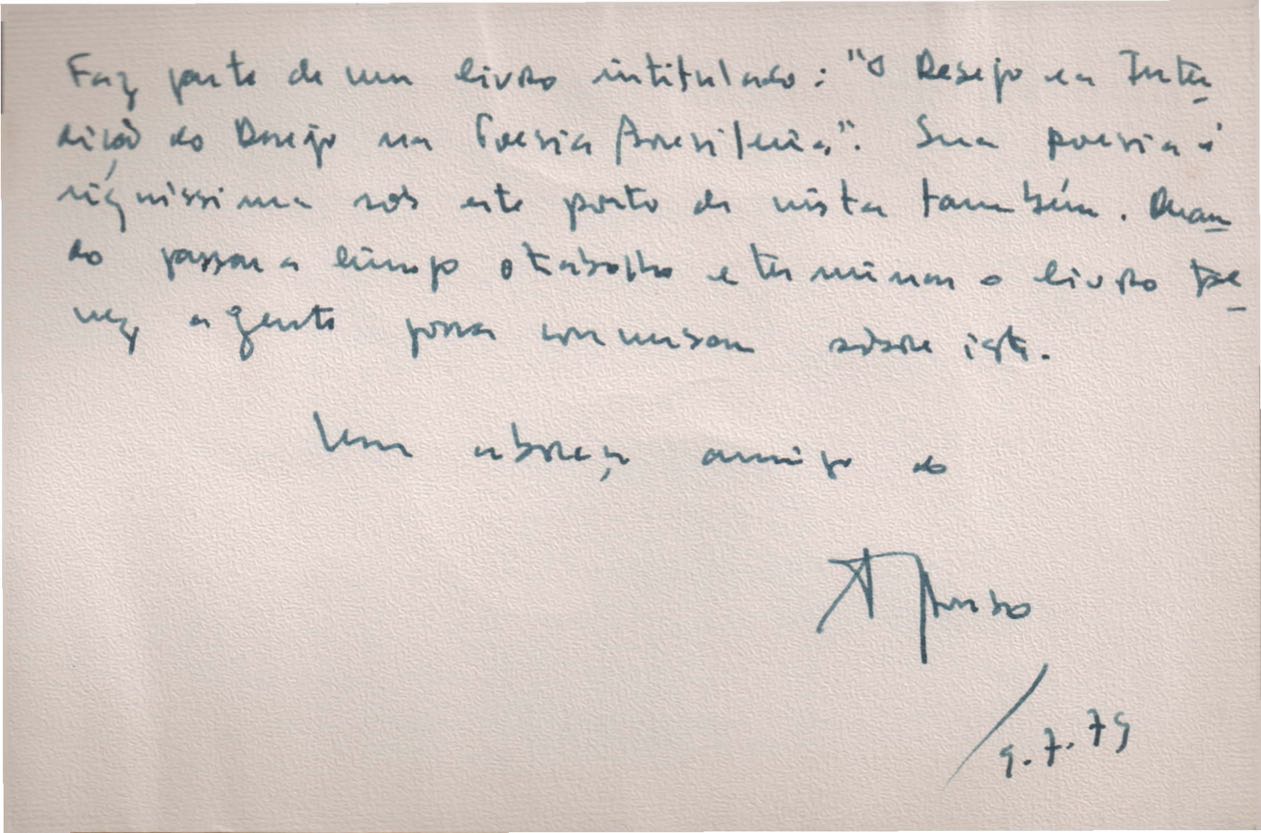 Faz parte de um livro intitulado: "O Desejo e a Inter
dição do Desejo na Poesia Brasileira". Sua poesia é
riquíssima sob este ponto de vista também. Quan
do passar a limpo o trabalho e terminar o livro tal
vez a gente possa conversar sobre isto.
Um abraço amigo do
Affonso
9.7.79